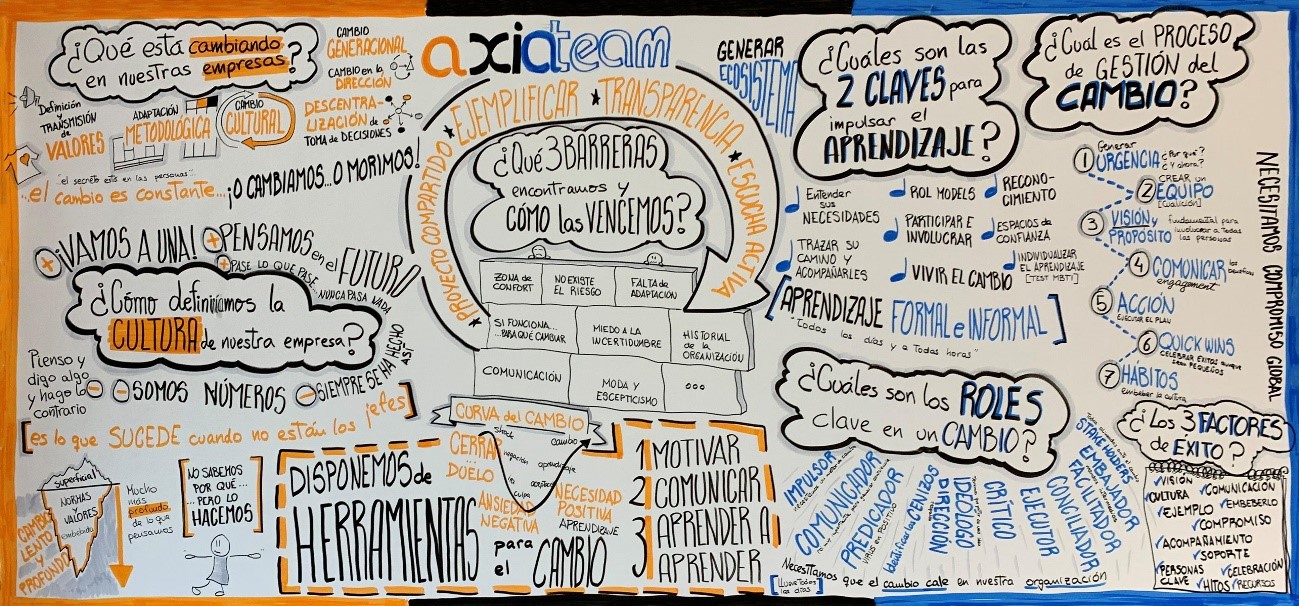 ¿Qué está cambiando
en nuestras empresas?
CAMBIO
GENERACIONAL
CAMBIO en la
DIRECCIÓN
Definición
y
TRANSMISIÓN
de
VALORES
ADAPTACIÓN
METODOLÓGICA
CAMBIO
CULTURAL
DESCENTRA-
LIZACIÓN de
TOMA de DECISIONES
"el secreto está en las personas"
..el cambio es constante...¡O CAMBIAMOS...O MORIMOS!
axiateam
PROYECTO COMPARTIDO ★ EJEMPLIFICAR ★ TRANSPARENCIA ★ ESCUCHA ACTIVA
¿Qué 3 BARRERAS
encontramos y
CÓMO las VENCEMOS?
ZONA de
CONFORT
NO EXISTE
EL RIESGO
FALTA de
ADAPTACIÓN
SI FUNCIONA...
PARA QUÉ CAMBIAR
MIEDO A LA
INCERTIDUMBRE
HISTORIAL
de la
ORGANIZACIÓN
COMUNICACIÓN
MODA Y
ESCEPTICISMO
...
GENERAR
ECOSISTEMA
¿Cuáles son las
2 CLAVES para
impulsar el
APRENDIZAJE?
Entender
sus
NECESIDADES
ROL MODELS
RECONO-
CIMIENTO
TRAZAR SU
CAMINO Y
ACOMPAÑARLES
PARTICIPAR E
INVOLUCRAR
ESPACIOS de
CONFIANZA
VIVIR EL CAMBIO
INDIVIDUALIZAR
EL APRENDIZAJE
[TEST MBTI]
[APRENDIZAJE FORMAL e INFORMAL]
"Todos los días y a Todas horas"
¿Cuál es el PROCESO
de GESTIÓN del
CAMBIO?
1 Generar
URGENCIA ¿Por qué?
¿Y ahora?
2 CREAR UN
EQUIPO
[coalición]
3 VISIÓN y
PROPÓSITO
fundamental para
involucrar a Todas
las personas
4 COMUNICAR los beneficios
engagement
5 ACCIÓN
EJECUTAR EL PLAN
6 QUICK WINS
CELEBRAR ÉXITOS aunque
sean PEQUEÑOS
7 HÁBITOS
embeber la cultura
NECESITAMOS COMPROMISO GLOBAL
+ ¡VAMOS A UNA!
+ PENSAMOS en el FUTURO
+ PASE LO QUE PASE, NUNCA PASA NADA
¿Cómo definimos la
CULTURA de nuestra empresa?
Pienso y
digo algo
y hago lo
contrario
- SOMOS NÚMEROS
- SIEMPRE SE HA HECHO ASÍ
[es lo que SUCEDE cuando no están los jefes]
superficial
NORMAS
y
VALORES
embebido
CAMBIO
LENTO y
PROFUNDO
Mucho
más
profundo
de lo que
pensamos
[NO SABEMOS
POR QUÉ...
...PERO LO
HACEMOS]
DISPONEMOS de
HERRAMIENTAS
para
el
CAMBIO
CURVA del CAMBIO
shock
cambio
negación
aprendizaje
culpa
CERRAR
...
DUELO
ANSIEDAD
NEGATIVA
NECESIDAD
POSITIVA
APRENDIZAJE
1 MOTIVAR
2 COMUNICAR
3 APRENDER A
3 APRENDER
¿Cuáles son los ROLES
clave en un CAMBIO?
IMPULSOR
COMUNICADOR
PREDICADOR
VIRUS EN POSITIVO
identificar los PERMIZOS
DIRECCIÓN
IDEÓLOGO
CRÍTICO
EJECUTOR
CONCILIADOR
FACILITADOR
EMBAJADOR
STAKEHOLDERS
Necesitamos que el cambio cale en nuestra organización
[LLUEVE Todos
los días]
¿Los 3 FACTORES
de ÉXITO?
VISIÓN
CULTURA
COMUNICACIÓN
EJEMPLO
EMBEBERLO
COMPROMISO
ACOMPAÑAMIENTO
SOPORTE
PERSONAS
CLAVE
CELEBRACIÓN
HITOS
RECURSOS